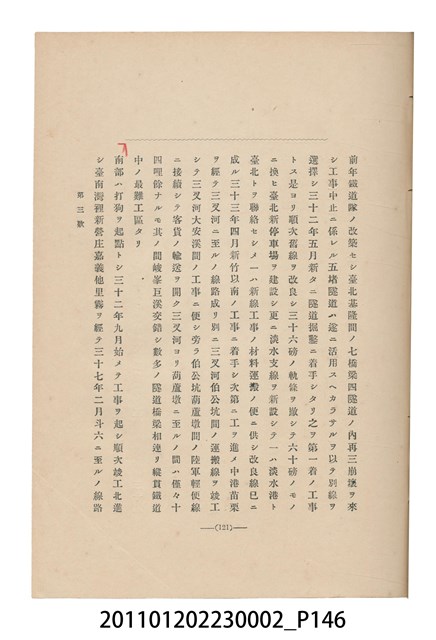 前年鐵道隊ノ改築セシ臺北基隆間ノ七橋梁四隧道ノ內再三崩壞ヲ來
シ工事中止ニ係レル五堵隧道ハ遂ニ活用スヘカラサルヲ以テ別線ヲ
選擇シ三十二年五月新タニ隧道掘鑿ニ着手シタリ之ヲ第一着ノ工事
トス是ヨリ順次舊線ヲ改良シ三十六磅ノ軌條ヲ撤シテ六十磅ノモノ
ニ換ヒ臺北新停車場ヲ建設シ更ニ淡水支線ヲ新設シテ一ハ淡水港ト
臺北トヲ聯絡セシメ一ハ新線工事ノ材料運搬ノ便ニ供シ改良線已ニ
成ル三十三年四月新竹以南ノ工事ニ着手シ次第ニ工ヲ進メ中港苗栗
ヲ經テ三叉河ニ至ルノ線路成リ別ニ三叉河伯公坑間ノ運搬線ヲ竣工
シテ三叉河大安溪間ノ工事ニ便シ旁ラ伯公坑葫蘆墩間ノ陸軍輕便線
ニ接續シテ客貨ノ輸送ヲ開ク三叉河ヨリ葫蘆墩ニ至ルノ間ハ僅々十
四哩餘ナルモ其ノ間峻峯巨溪交錯シ數多ノ隧道橋梁相連リ縱貫鐵道
中ノ最難工區タリ
南部ハ打狗ヲ起點トシ三十二年九月始メテ工事ヲ起シ順次竣工北進
シ臺南灣裡新營庄嘉義他里霧ヲ經テ三十七年二月斗六ニ至ルノ線路
第三號
(121)
201101202230002_P146